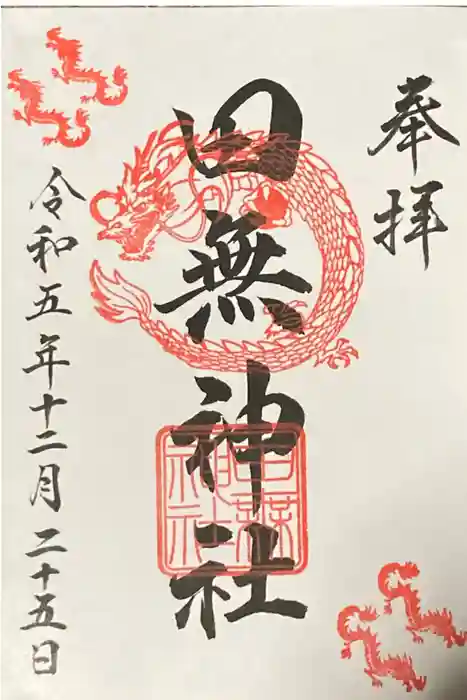 奉拝
田無神社
令和五年十二月二十五日